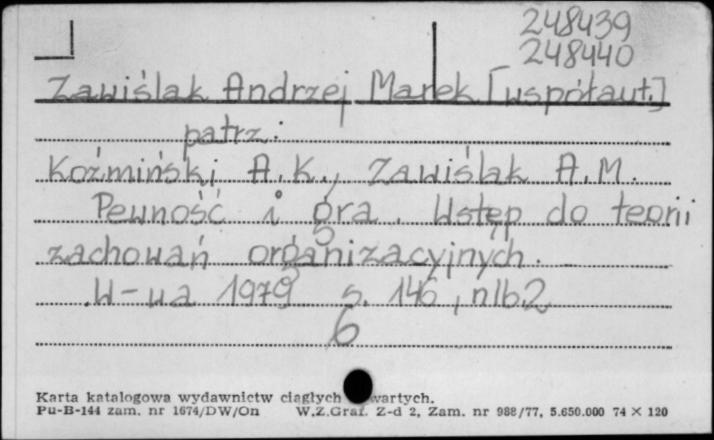 248439
248440
Zawiślak Andrzej Marek [współaut.]
patrz:
Koźmiński A.K., Zawiślak A.M.
Pewność i gra. Wstęp do teorii
zachowań organizacyjnych.
W-wa 1979 s. 146, nlb.2
6
Karta katalogowa wydawnictw ciągłych
Pu-B-144 zam. nr 1674/DW/On W.Z.Graf. Z-d 2, Zam. nr 988/77, 5.650.000 74 × 120